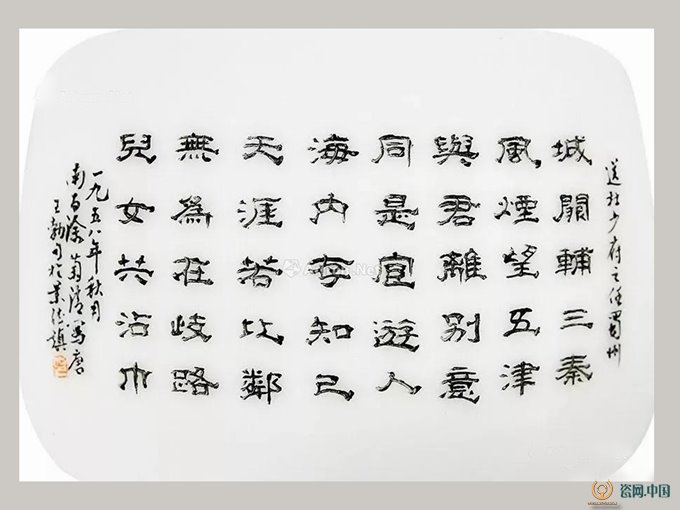 送杜少府之任蜀州
城闕輔三秦
風煙望五津
與君離別意
同是宦遊人
海內存知己
天涯若比鄰
無為在岐路
兒女共沾巾
一九五八年秋月
南昌涂菊清寫唐
王勃句於景德鎮
瓷网.中国